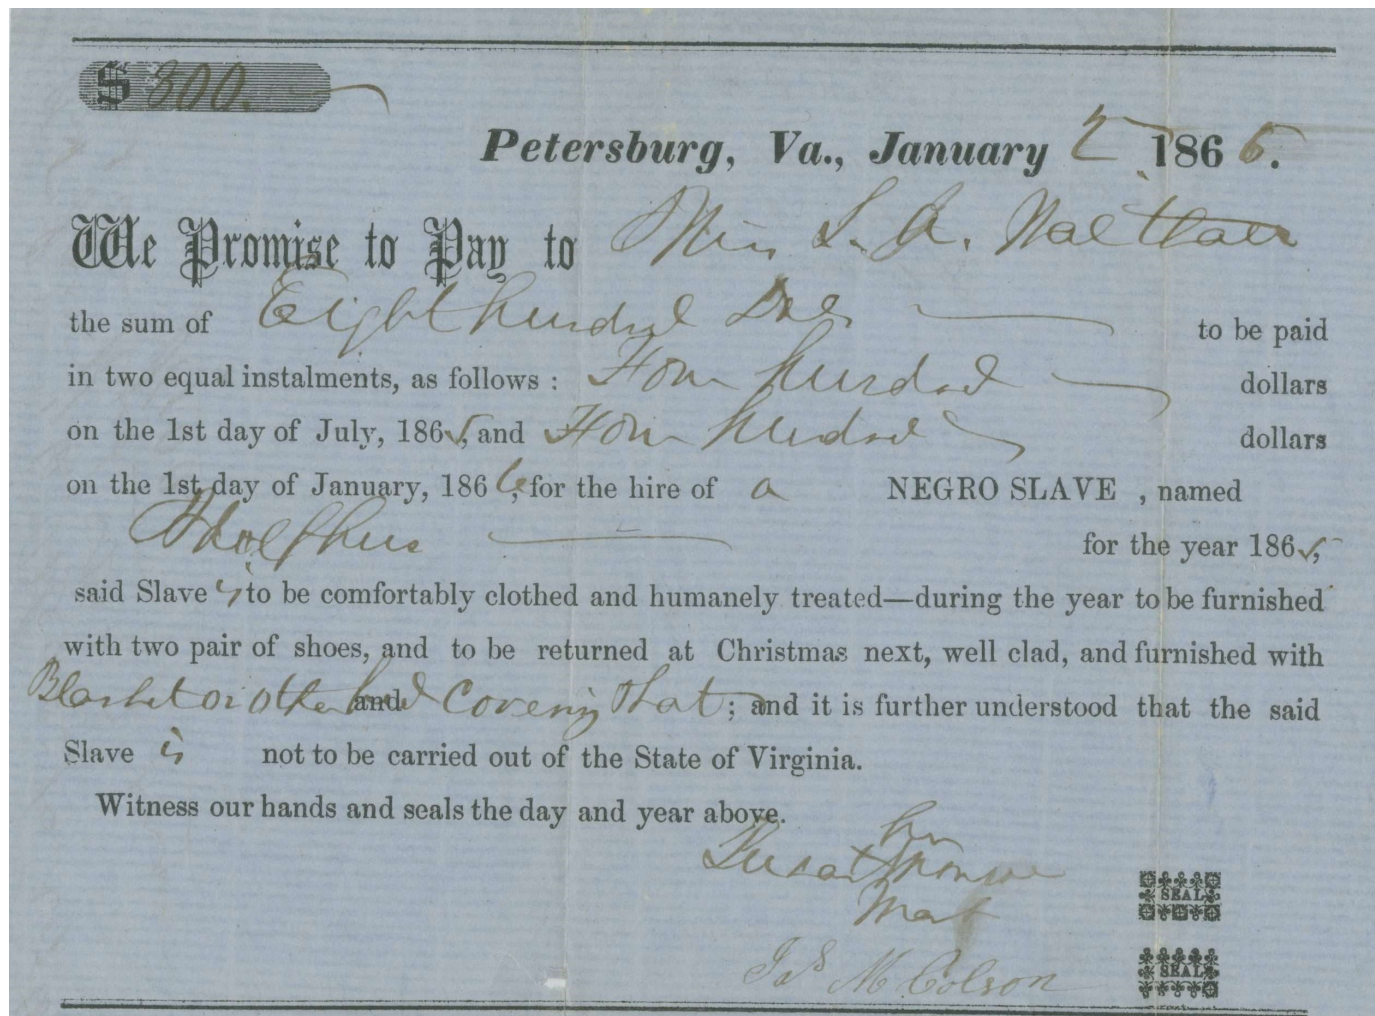 $ 800.
Petersburg, Va., January 2 1865.
We Promise to Pay to Miss L. A.
the sum of Eight hundred Dols to be paid
in two equal instalments, as follows : Four hundred dollars
on the 1st day of July, 1865, and Four hundred dollars
on the 1st day of January, 1866, for the hire of a NEGRO SLAVE , named
Adolphus for the year 1865,
said Slave is to be comfortably clothed and humanely treated—during the year to be furnished
with two pair of shoes, and to be returned at Christmas next, well clad, and furnished with
Blanket or other bed Covering and hat ; and it is further understood that the said
Slave is not to be carried out of the State of Virginia.
Witness our hands and seals the day and year above.
her
Susan X
Mark
SEAL
Jas M Colson
SEAL